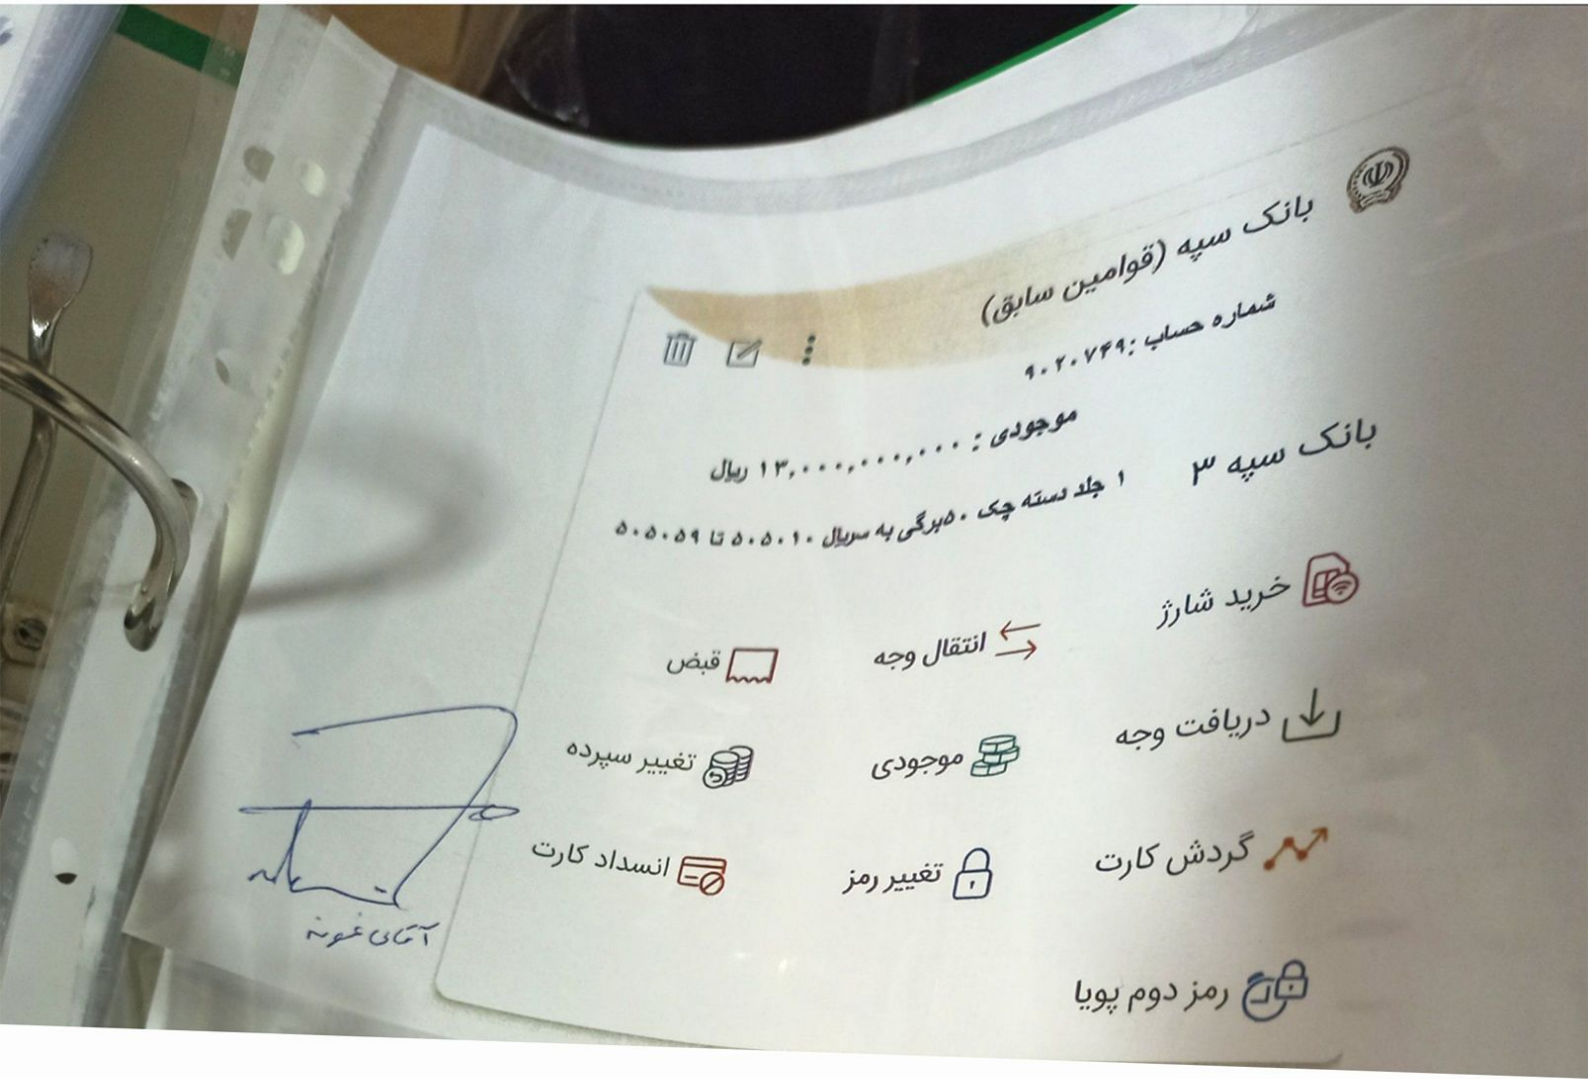 بانک سپه (قوامین سابق)
شماره حساب :۹۰۲۰۷۴۹
موجودی : ۱۳,۰۰۰,۰۰۰,۰۰۰ ریال
بانک سپه ۳
۱ جلد دسته چک ۵۰برگی به سریال ۵۰۵۰۱۰ تا ۵۰۵۰۵۹
خرید شارژ
انتقال وجه
قبض
دریافت وجه
موجودی
تغییر سپرده
گردش کارت
تغییر رمز
انسداد کارت
رمز دوم پویا
آقای نمونه